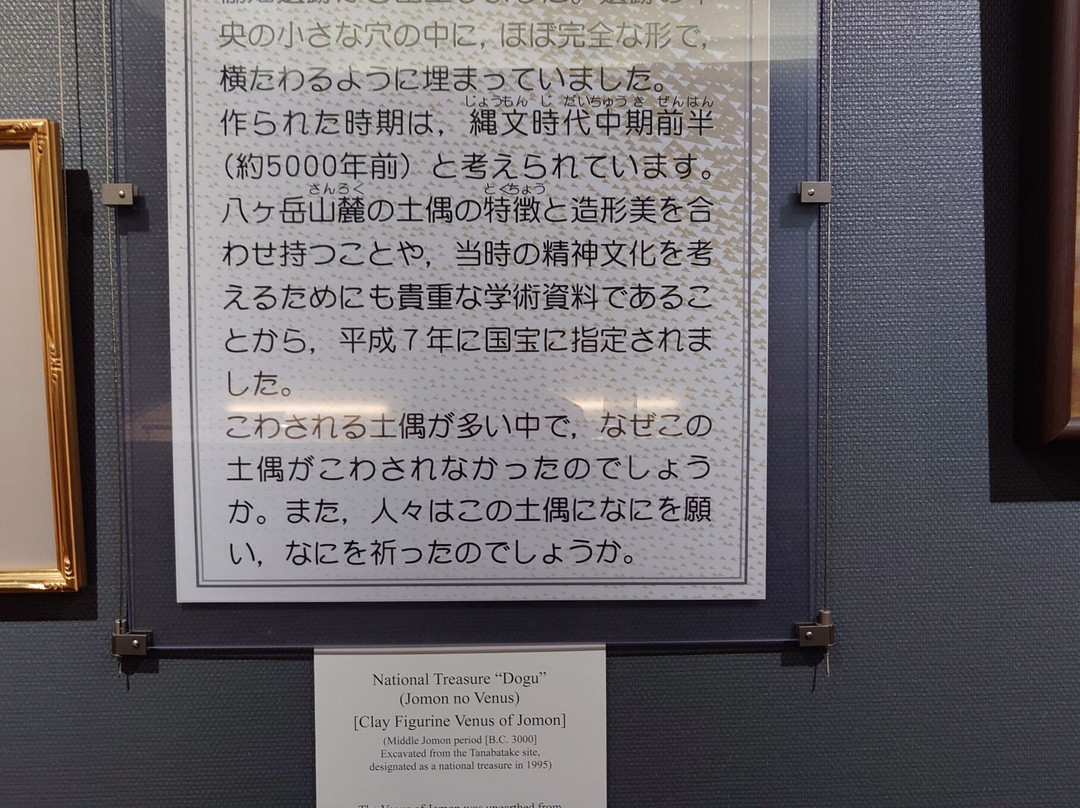 央の小さな穴の中に，ほぼ完全な形で，
横たわるように埋まっていました。
じょうもん じ だいちゅう き ぜんはん
作られた時期は，縄文時代中期前半
（約5000年前）と考えられています。
さんろく どくちょう
八ヶ岳山麓の土偶の特徴と造形美を合
わせ持つことや，当時の精神文化を考
えるためにも貴重な学術資料であるこ
とから，平成７年に国宝に指定されま
した。
こわされる土偶が多い中で，なぜこの
土偶がこわされなかったのでしょう
か。また，人々はこの土偶になにを願
い，なにを祈ったのでしょうか。
National Treasure “Dogu”
(Jomon no Venus)
[Clay Figurine Venus of Jomon]
(Middle Jomon period [B.C. 3000]
Excavated from the Tanabatake site,
designated as a national treasure in 1995)
The Venus of Jomon was unearthed from